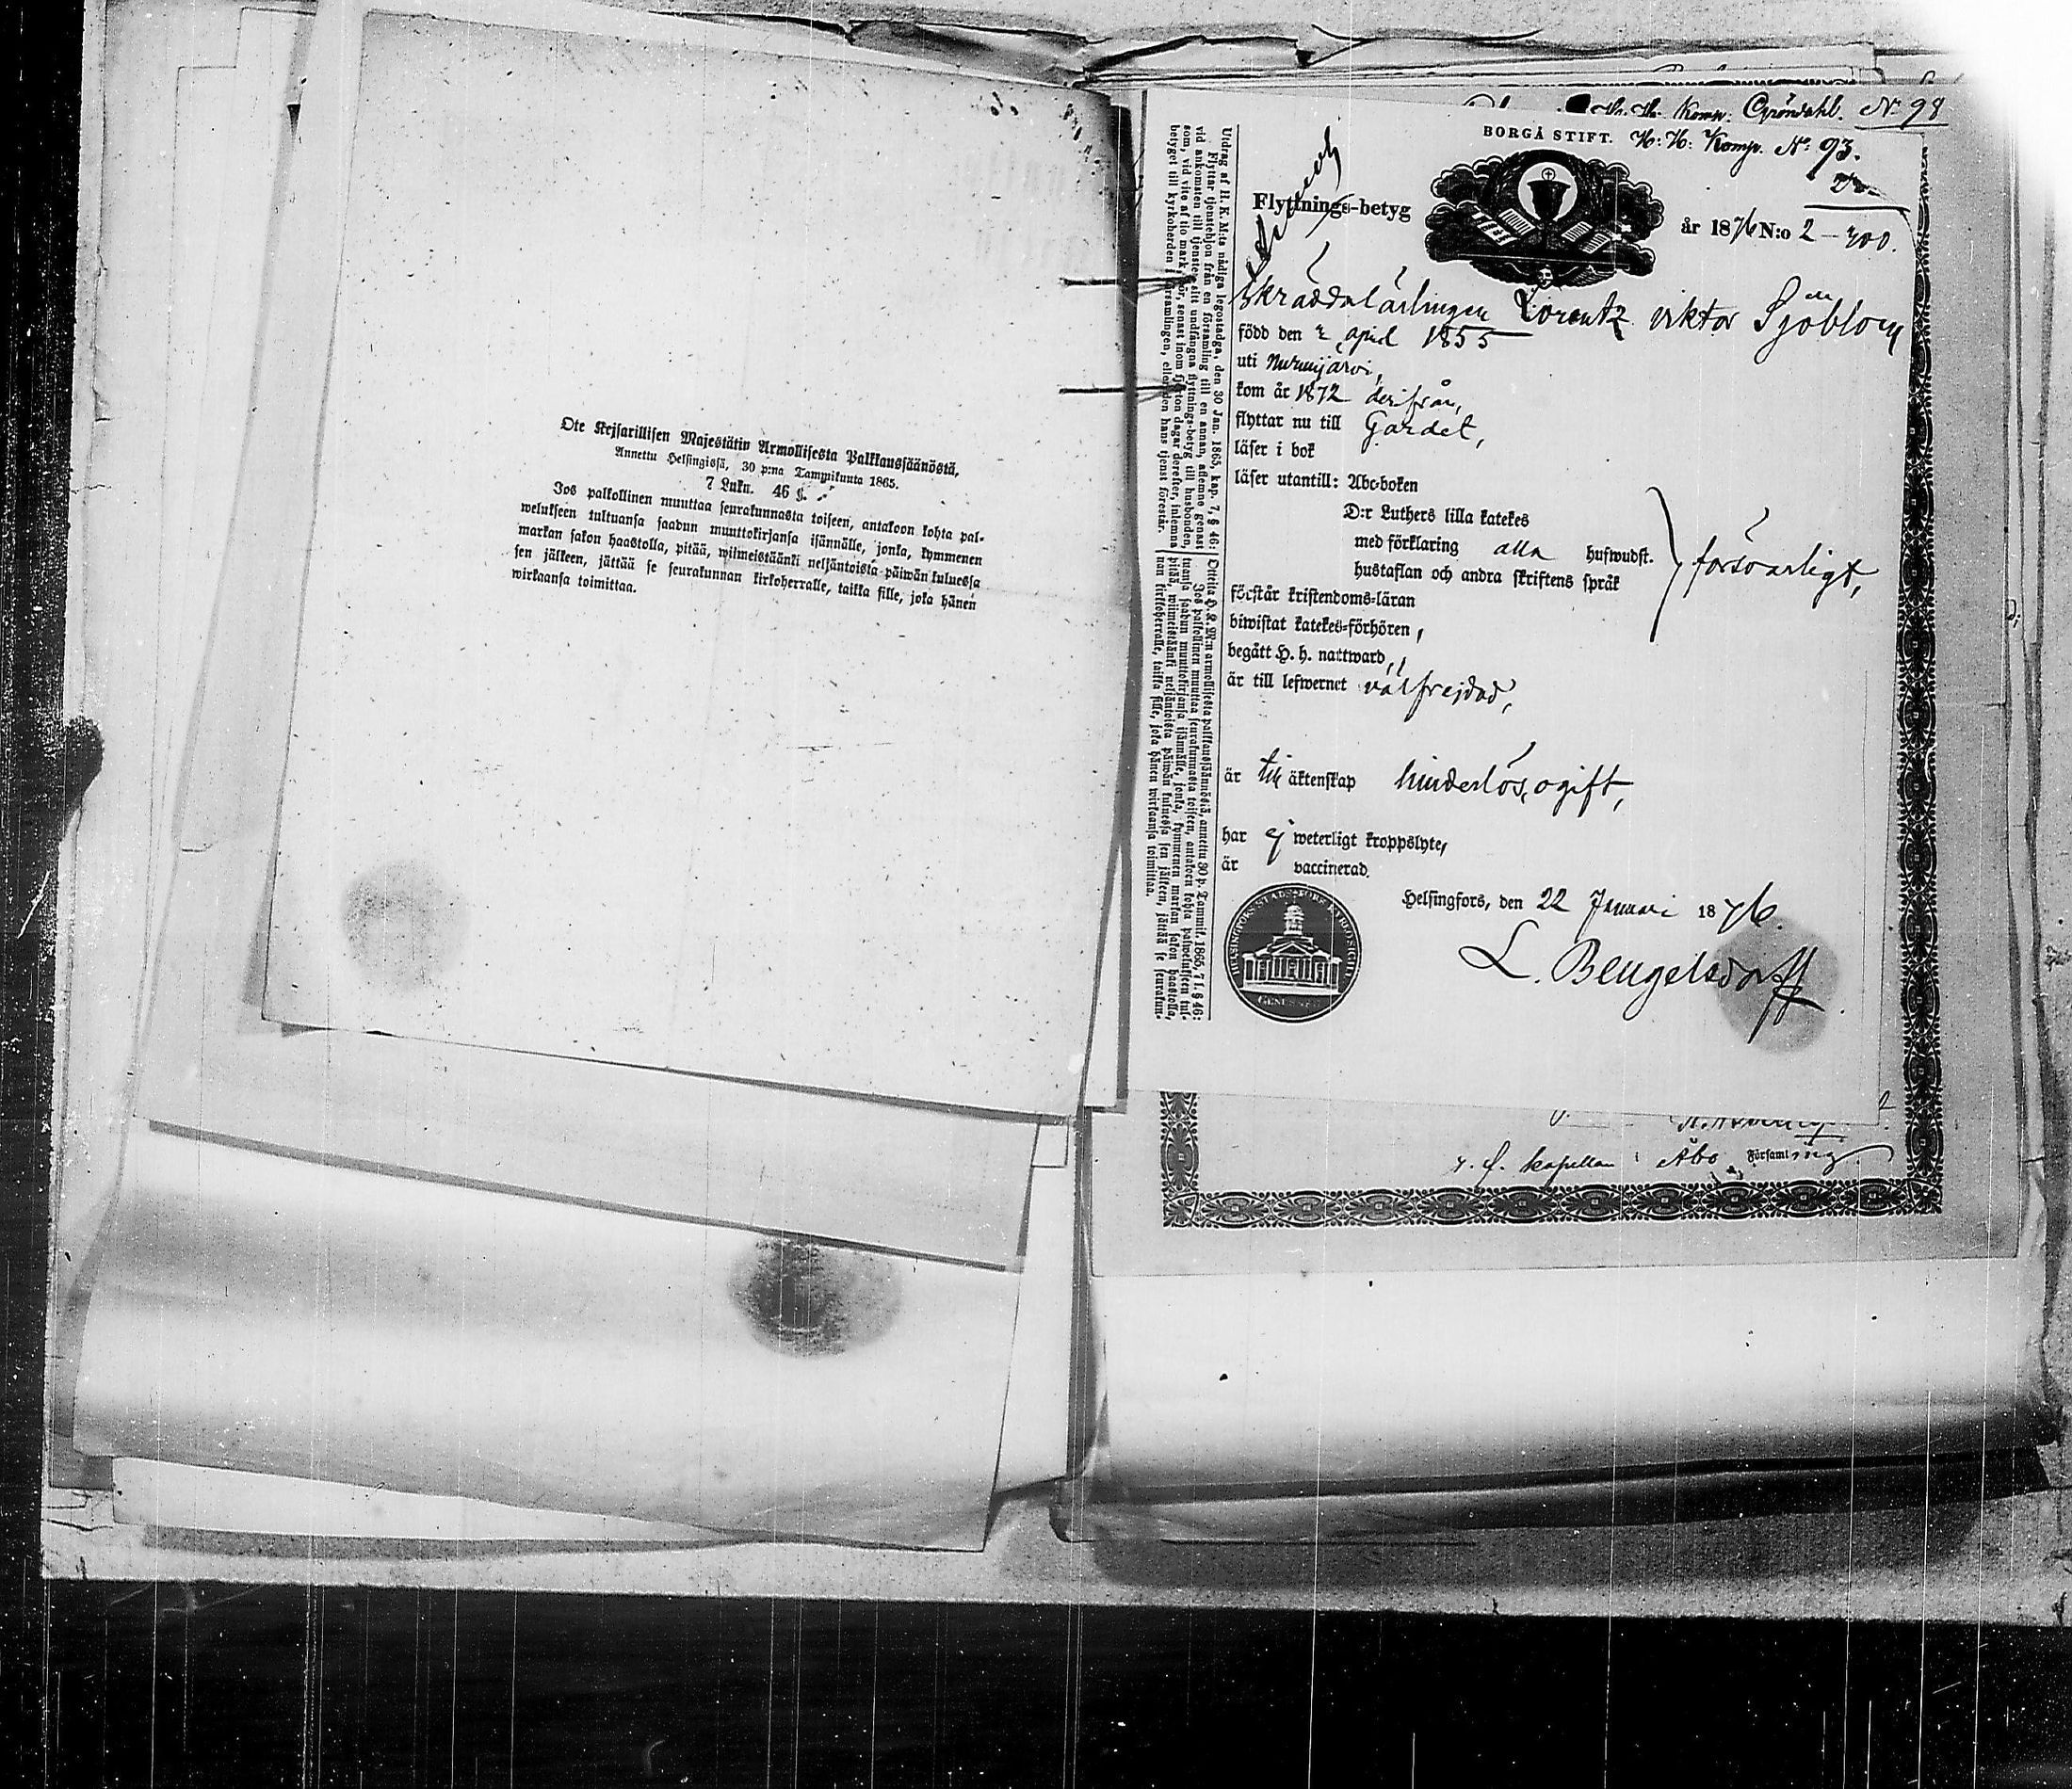 Ote Keisarillisen Majestätin Armollisesta Palkkaussäänöstä,
Annettu Helsingissä, 30 p:na Tammikuuta 1865.
7 Luku. 46 §.
Jos palkollinen muuttaa seurakunnasta toiseen, antakoon kohta pal-
welukseen tultuansa saadun muuttokirjansa isännälle, jonka, kymmenen
markan sakon haastolla, pitää, wiimeistäänki neljäntoista päiwän kuluessa
sen jälkeen, jättää se seurakunnan kirkoherralle, taikka sille, joka hänen
wirkaansa toimittaa.
Komp. Gröndahl. No 98
BORGÅ STIFT. H: H: Komp. No 93.
Flyttnings-betyg
år 1876 N:o 2 – 700.
Skräddarlärlingen Lorentz Viktor Sjöblom
född den 2 april 1855
uti Nurmijärvi,
kom år 1872 derifrån,
flyttar nu till Gardet,
läser i bok
läser utantill: Abc-boken
D:r Luthers lilla katekes
med förklaring alla hufwudst.
hustaflan och andra skriftens språk
försvarligt,
förstår kristendoms-läran
biwistat katekes-förhören,
begått H. h. nattward,
är till lefwernet välfrejdad,
är till äktenskap hinderlös, ogift,
har ej weterligt kroppslyte,
är vaccinerad.
Helsingfors, den 22 Januari 1876.
L. Bengelsdorff
Utdrag af H. K. M:ts nådiga legostadga, den 30 Jan. 1865, kap. 7, § 46:
Flyttar tjenstehjon från en församling till en annan, aflemne genast
vid ankomsten till tjensten sitt undfångna flyttnings-betyg till husbonden,
som, vid vite af tio mark, bör, senast inom fjorton dagar derefter, inlemna
betyget till kyrkoherden i församlingen, eller den hans tjenst förestår.
Otteita H. K. M:n armollisesta palkkaussäännöstä, annettu 30 p. Tammik. 1865, 7 l. § 46:
Jos palkollinen muuttaa seurakunnasta toiseen, antakoon kohta palwelukseen tul-
tuansa saadun muuttokirjansa isännälle, jonka, kymmenen markan sakon haastolla,
pitää, wiimeistäänki neljäntoista päiwän kuluessa sen jälkeen, jättää se seurakun-
nan kirkoherralle, taikka sille, joka hänen wirkaansa toimittaa.
kapellan i Åbo Församling